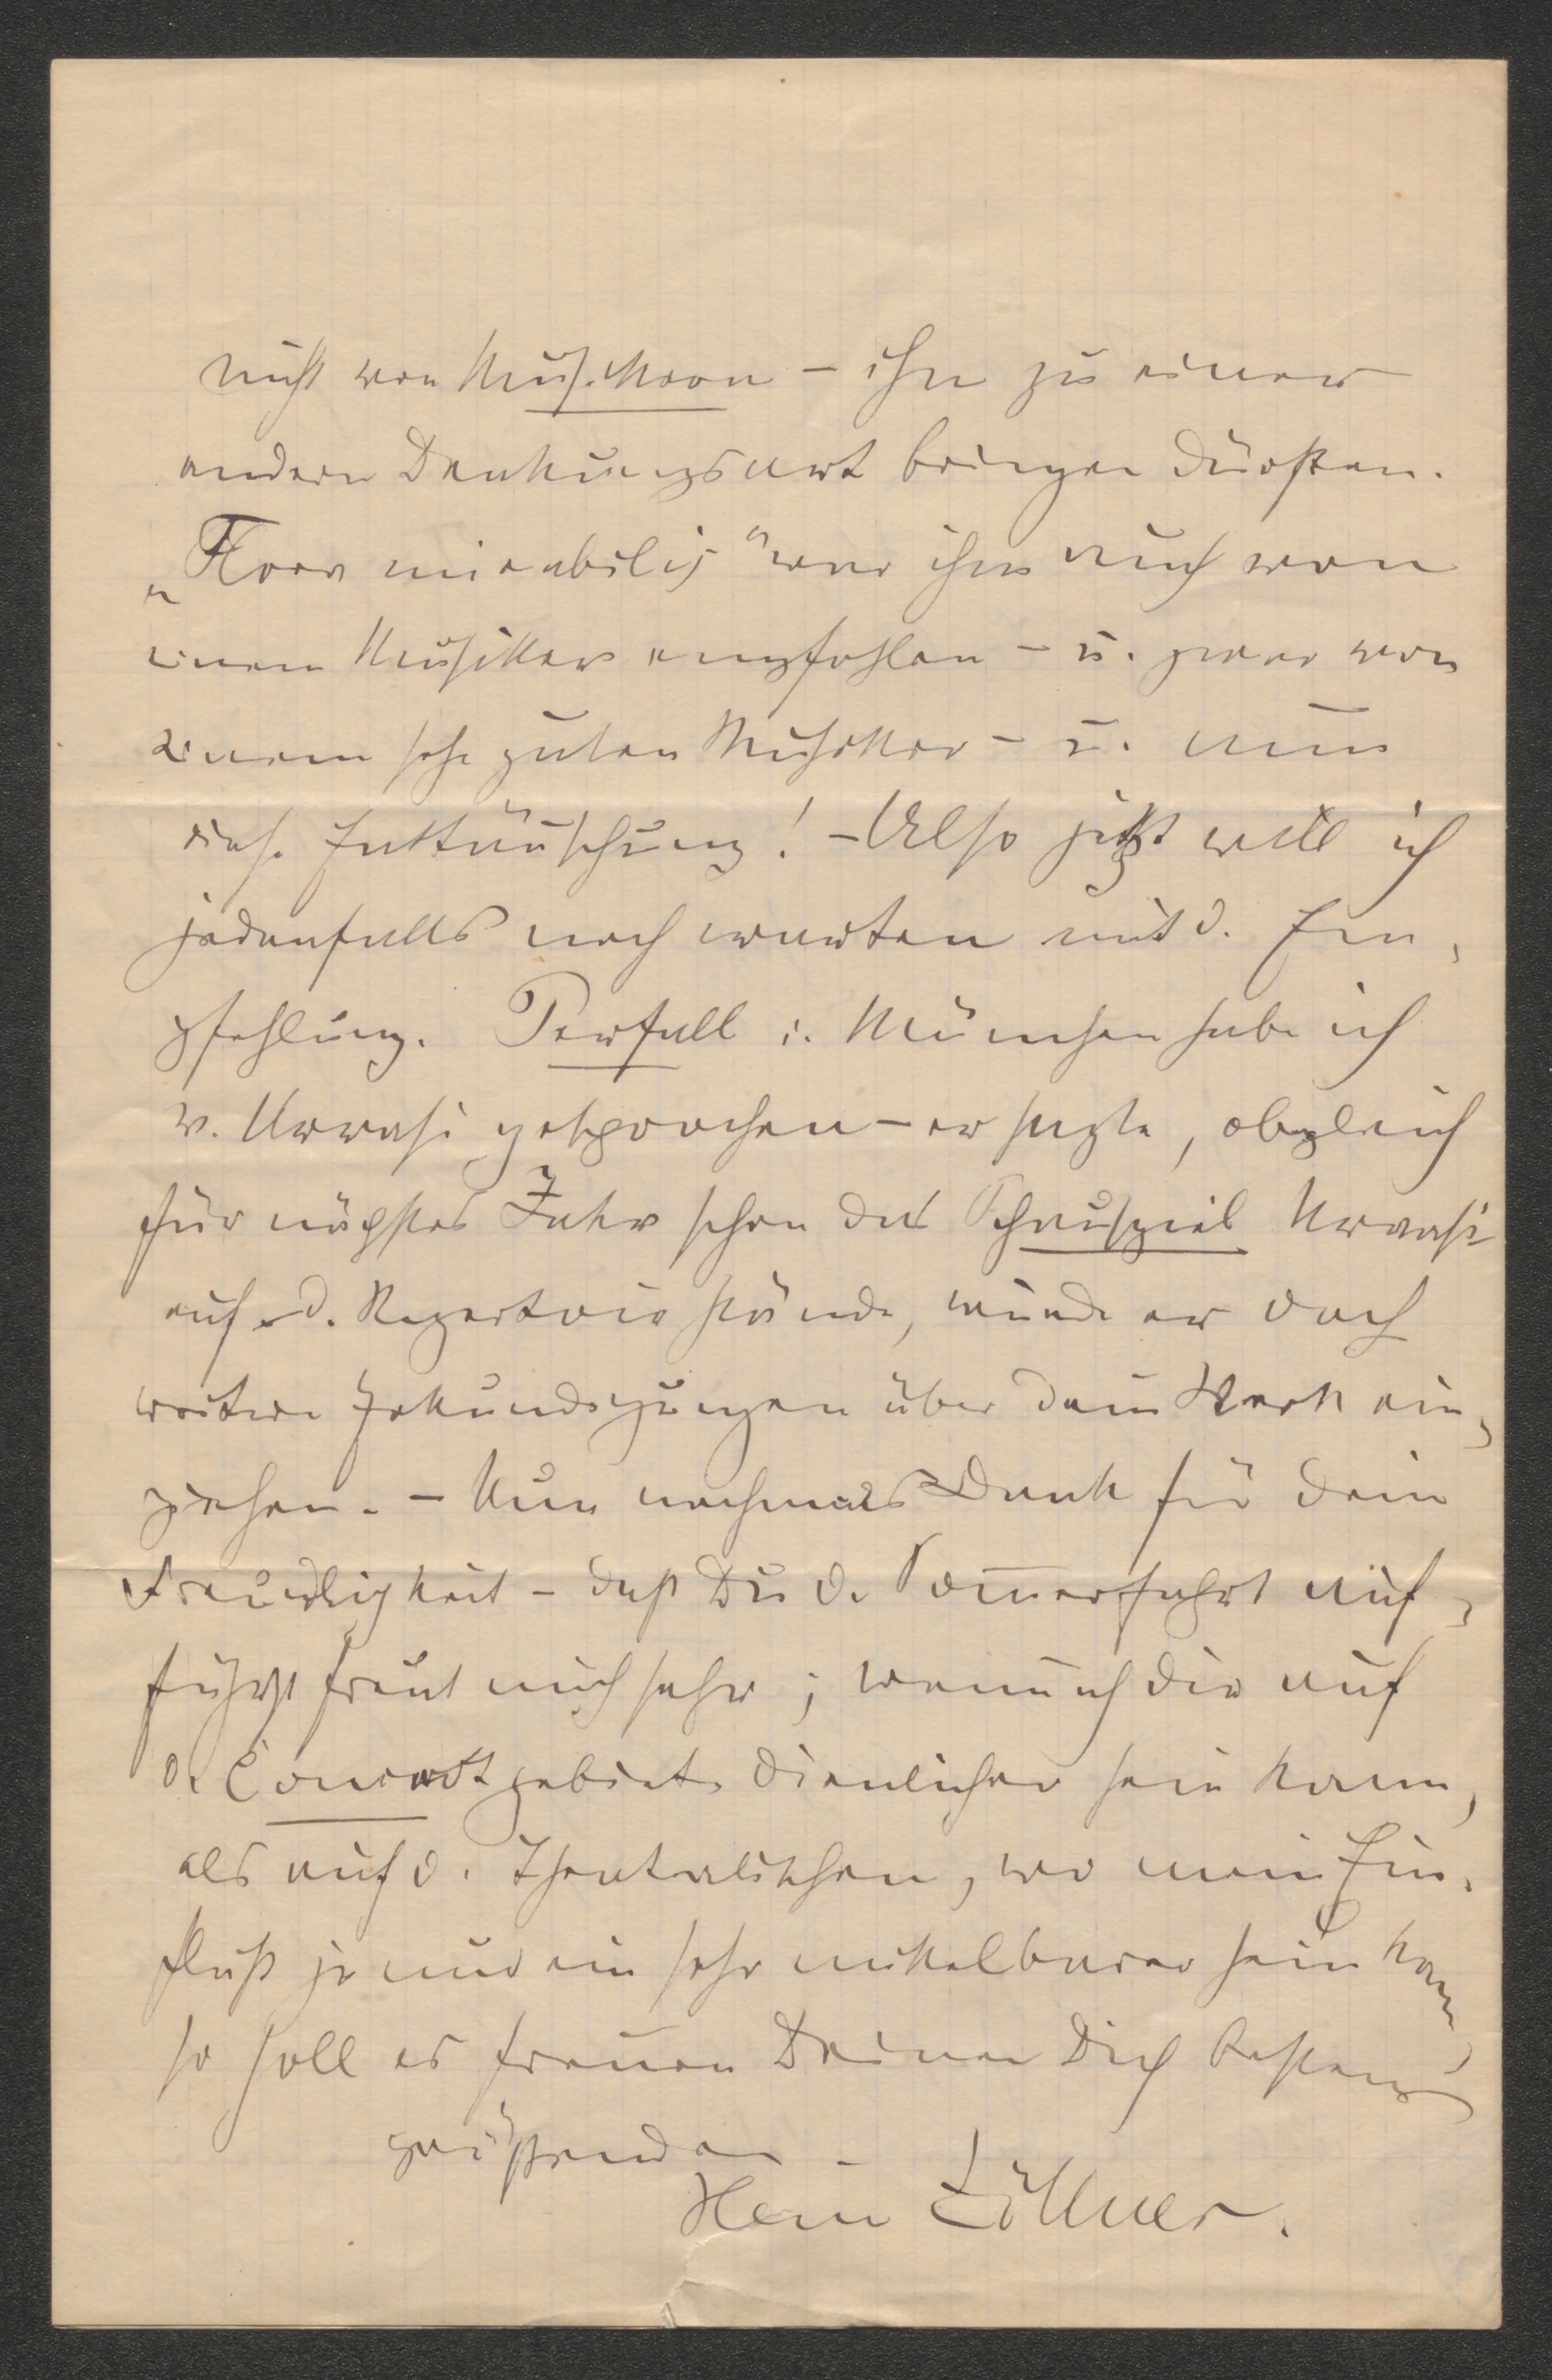 nicht von Musikern – ihn zu einer
andern Denkungsart bringen dürften.
„Flora mirabilis" war ihm auch von
einem Musiker empfohlen – u. zwar von
einem sehr guten Musiker – u. nun
diese Enttäuschung! – Also jetzt will ich
jedenfalls noch warten mit d. Em-
pfehlung. Perfall i. München habe ich
v. Urvasi gesprochen – er sagte, obgleich
für nächstes Jahr schon das Schauspiel Urvasi
auf d. Repertoir stände, würde er doch
weitere Erkundigungen über dein Werk ein-
ziehen. – Nun nochmals Dank für dein
Freundlichkeit – daß Du d. Sommerfahrt auf-
führst freut mich sehr; wenn ich dir auf
d. Concertgebiete dienlicher sein kann,
als auf d. theatralischen, wo mein Ein-
fluß ja nur ein sehr mittelbarer sein kann,
so soll es freuen Deinen Dich bestens
grüßenden –
Hein Zöllner.